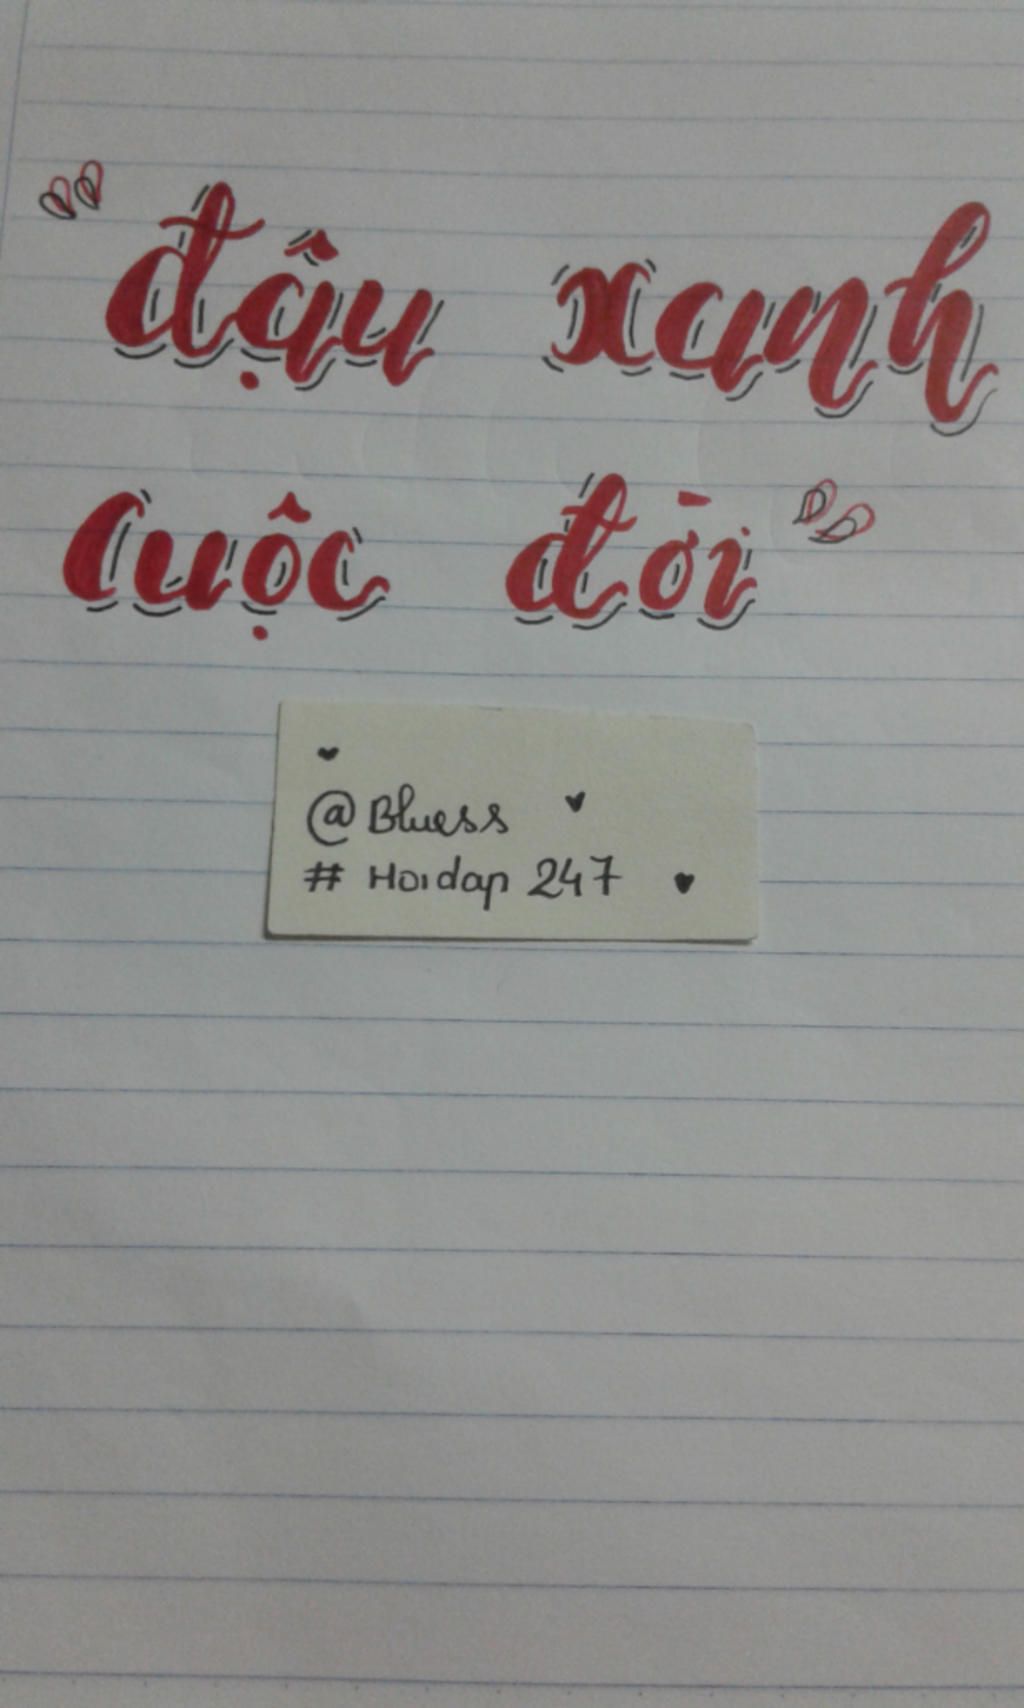 "đậu xanh
cuộc đời"
@Bluess
# Hoidap 247